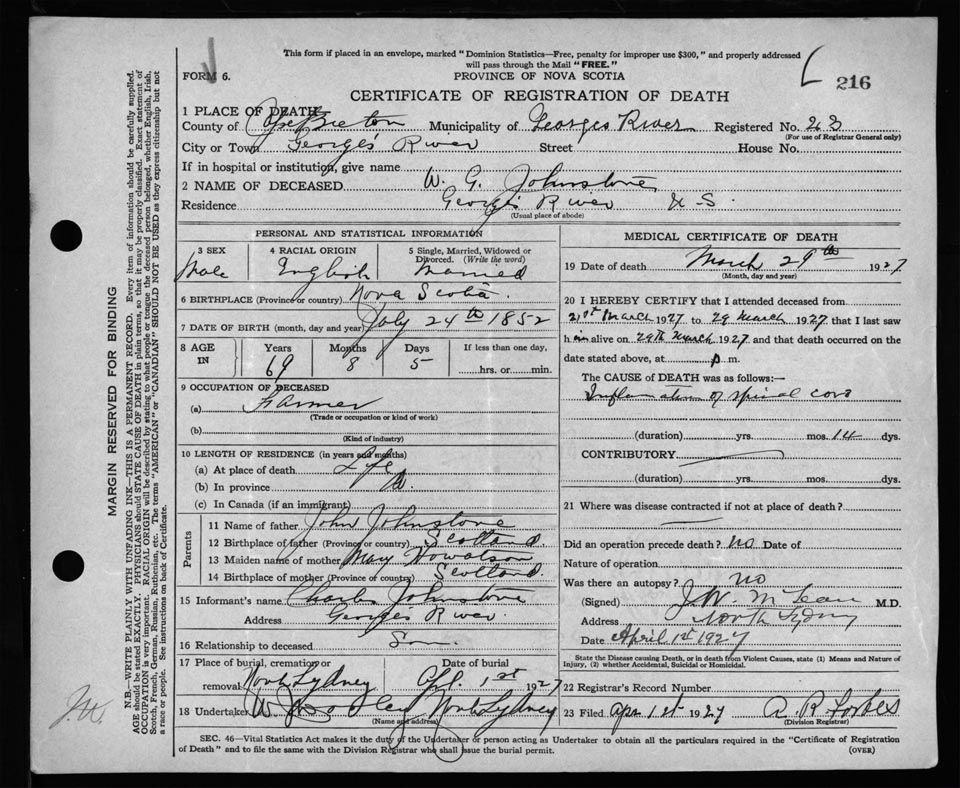 This form if placed in an envelope, marked "Dominion Statistics—Free, penalty for improper use $300," and properly addressed
will pass through the Mail "FREE."
FORM 6. PROVINCE OF NOVA SCOTIA 216
CERTIFICATE OF REGISTRATION OF DEATH
1 PLACE OF DEATH
County of Cape Breton Municipality of Georges River Registered No. 23
(For use of Registrar General only)
City or Town Georges River Street House No.
If in hospital or institution, give name
2 NAME OF DECEASED W. G. Johnstone
Residence Georges River N.S.
(Usual place of abode)
PERSONAL AND STATISTICAL INFORMATION
3 SEX 4 RACIAL ORIGIN 5 Single, Married, Widowed or Divorced. (Write the word)
Male English Married
6 BIRTHPLACE (Province or country) Nova Scotia.
7 DATE OF BIRTH (month, day and year) July 24th 1852
8 AGE IN Years Months Days If less than one day,
69 8 5 hrs. or min.
9 OCCUPATION OF DECEASED
(a) Farmer
(Trade or occupation or kind of work)
(b)
(Kind of industry)
10 LENGTH OF RESIDENCE (in years and months)
(a) At place of death Life
(b) In province
(c) In Canada (if an immigrant)
Parents
11 Name of father John Johnstone
12 Birthplace of father (Province or country) Scotland.
13 Maiden name of mother Mary
14 Birthplace of mother (Province or country) Scotland.
15 Informant's name Charles Johnstone
Address Georges River
16 Relationship to deceased Son
17 Place of burial, cremation or removal North Sydney Date of burial Apl. 1st 1927
18 Undertaker W. North Sydney
(Name and address)
MEDICAL CERTIFICATE OF DEATH
19 Date of death March 29th 1927
(Month, day and year)
20 I HEREBY CERTIFY that I attended deceased from
21st March 1927 to 29 March 1927 that I last saw
h im alive on 29th March 1927 and that death occurred on the
date stated above, at p. m.
The CAUSE of DEATH was as follows:—
Inflamation of spinal cord
(duration) yrs. mos. 14 dys.
CONTRIBUTORY
(duration) yrs. mos. dys.
21 Where was disease contracted if not at place of death?
Did an operation precede death? no Date of
Nature of operation
Was there an autopsy? no
(Signed) J.W. McLean M.D.
Address North Sydney
Date April 1st 1927
State the Disease causing Death, or in death from Violent Causes, state (1) Means and Nature of
Injury, (2) whether Accidental, Suicidal or Homicidal.
22 Registrar's Record Number
23 Filed Apr 1st 1927 A. R. Forbes
(Division Registrar)
SEC. 46—Vital Statistics Act makes it the duty of the Undertaker or person acting as Undertaker to obtain all the particulars required in the "Certificate of Registration
of Death" and to file the same with the Division Registrar who shall issue the burial permit. (OVER)
MARGIN RESERVED FOR BINDING
N.B.—WRITE PLAINLY WITH UNFADING INK—THIS IS A PERMANENT RECORD. Every item of information should be carefully supplied.
AGE should be stated EXACTLY. PHYSICIANS should STATE CAUSE OF DEATH in plain terms, so that it may be properly classified. Exact statement of
OCCUPATION is very important. RACIAL ORIGIN will be described by stating to what people or tongue the deceased person belonged, whether English, Irish,
Scotch, French, German, Russian, Ruthenian, etc. The terms "AMERICAN" or "CANADIAN" SHOULD NOT BE USED as they express citizenship but not
a race or people. See instructions on back of Certificate.